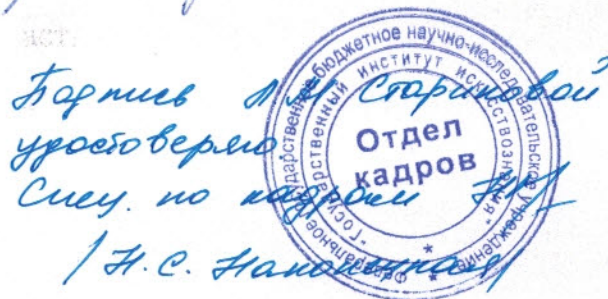 Подпись Л.М. Стариковой
удостоверяю
Спец. по кадрам
/ Н.С.
Федеральное государственное бюджетное научно-исследовательское учреждение *
"Государственный институт искусствознания" *
Отдел
кадров